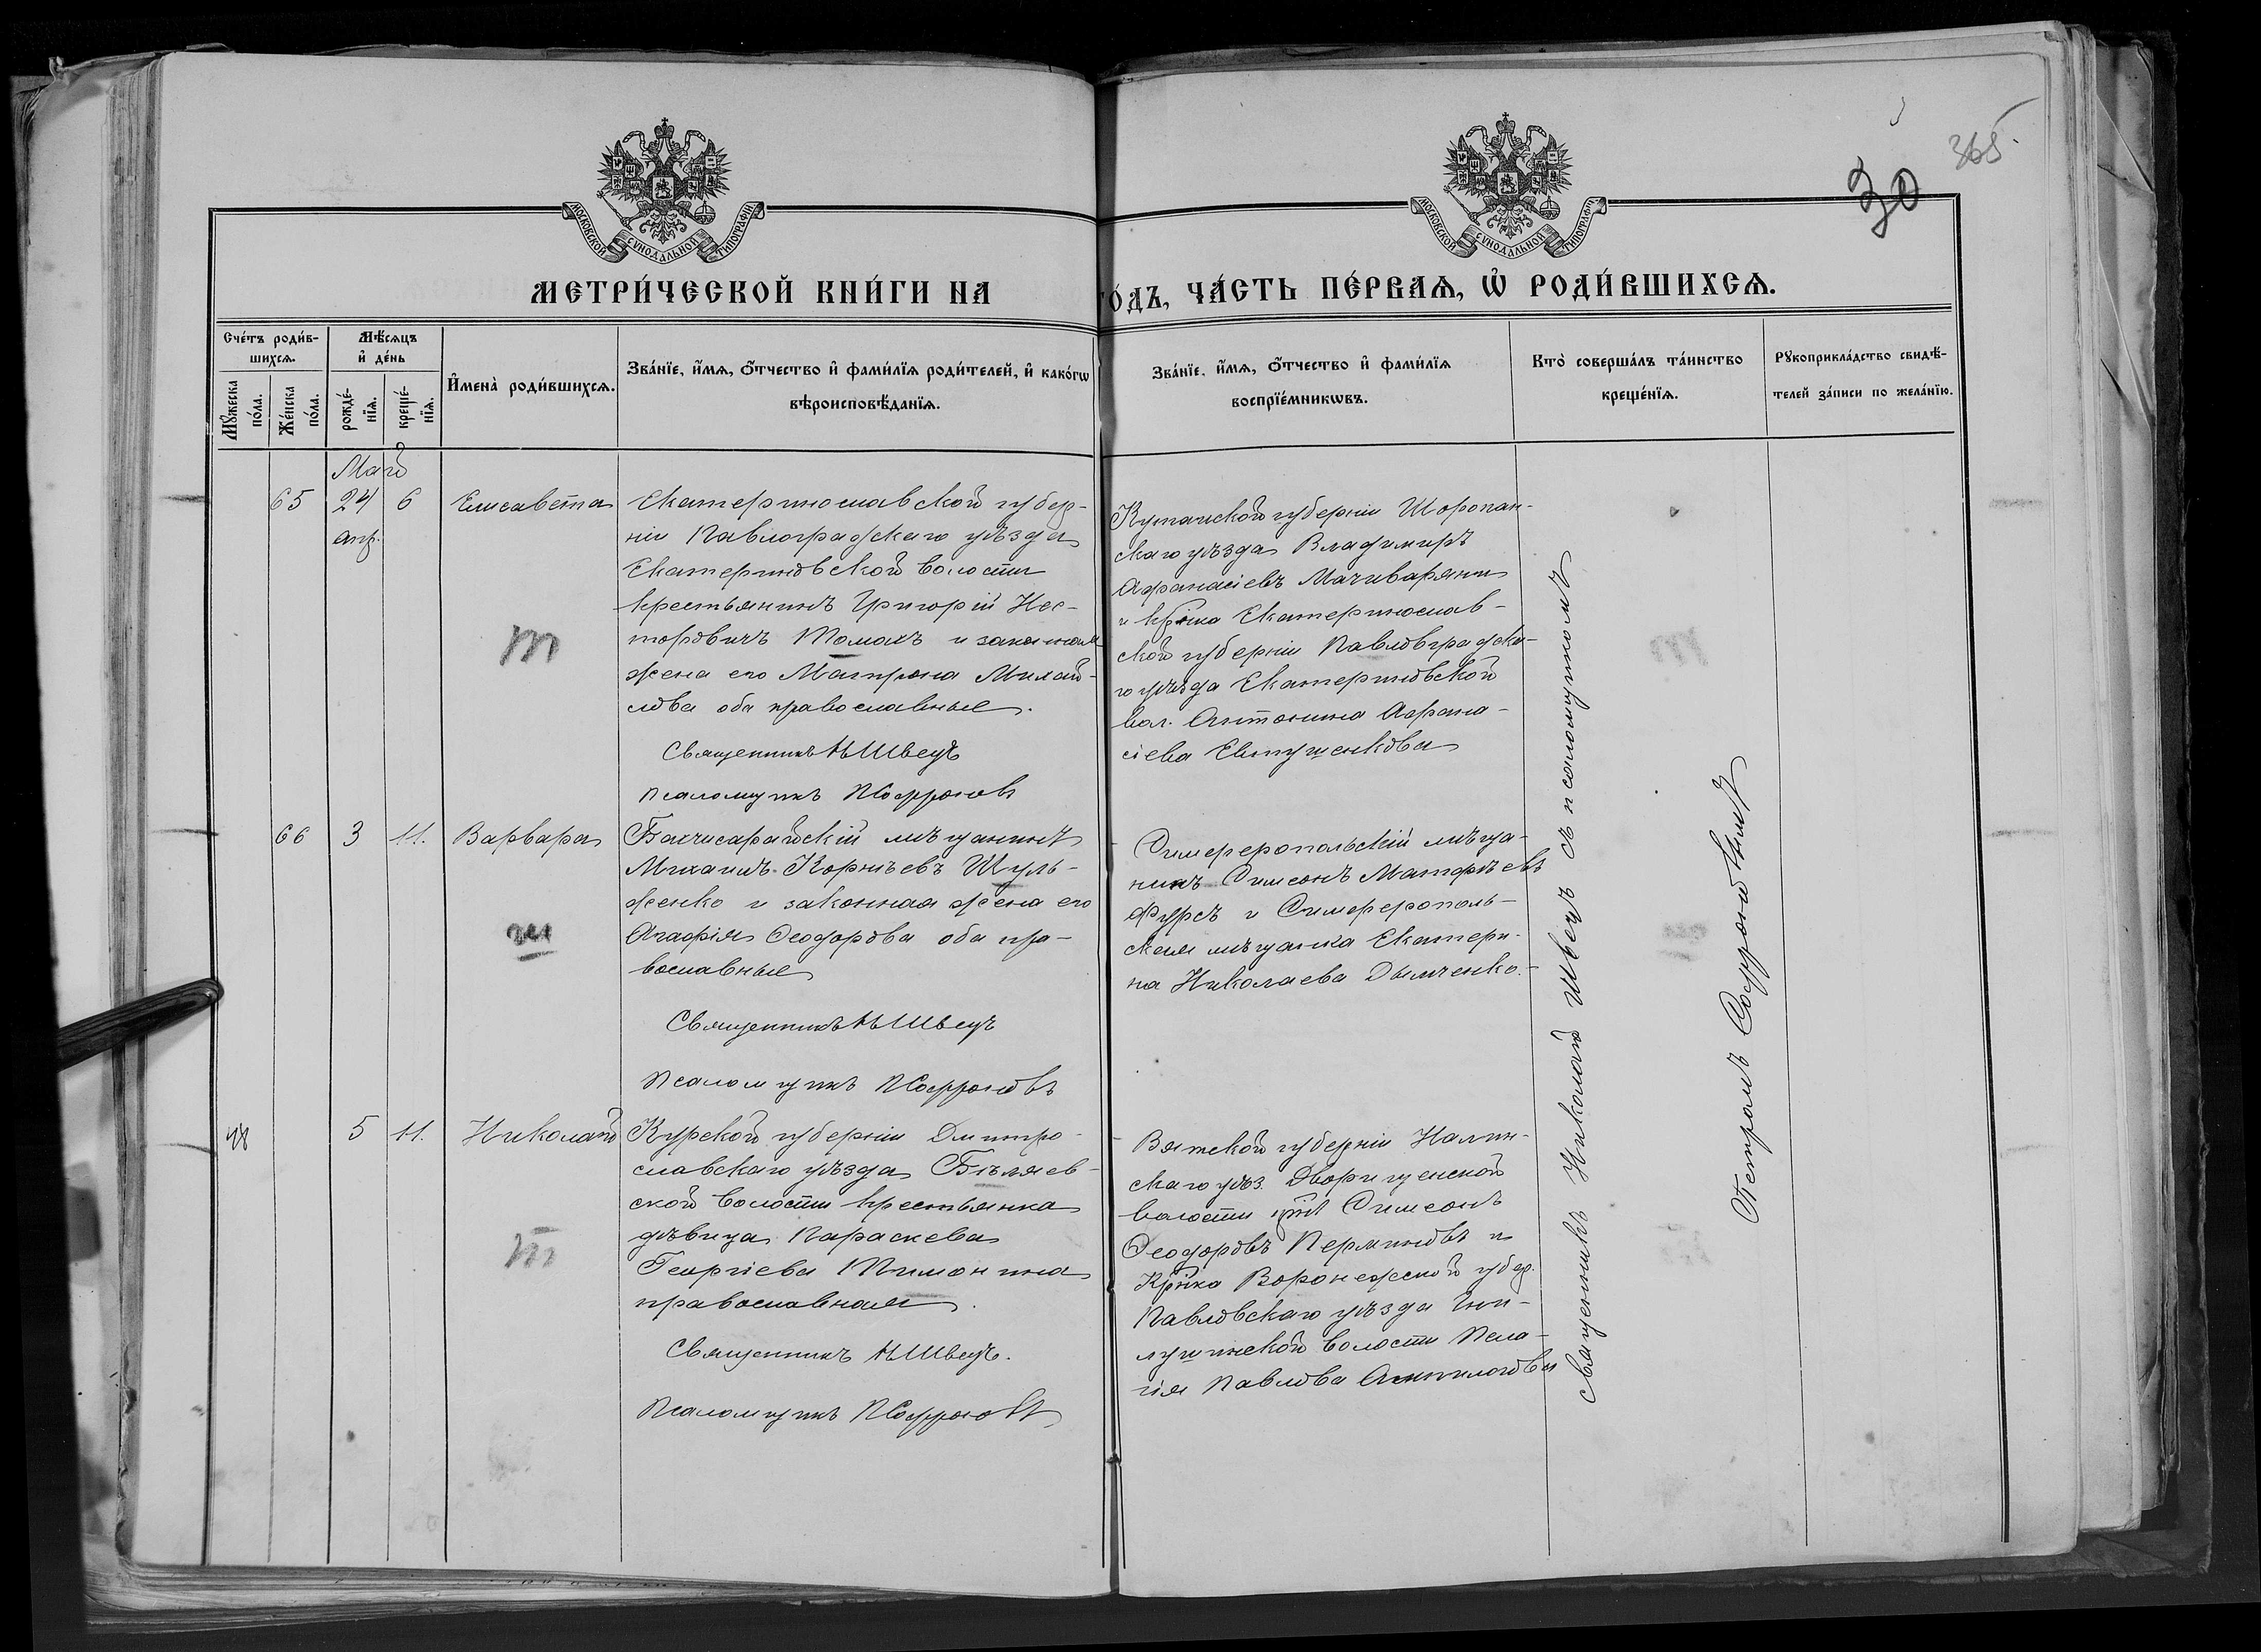 365
30
МОСКОВСКОЙ СУНОДАЛЬНОЙ ТИПОГРАФІИ
МОСКОВСКОЙ СУНОДАЛЬНОЙ ТИПОГРАФІИ
МЕТРИ́ЧЕСКОЙ КНИ́ГИ НА
ГО́ДЪ, ЧА́СТЬ ПЕ́РВАѦ, Ѡ҆ РОДИ́ВШИХСѦ.
Сче́тъ роди́в-
шихсѧ.
Мꙋ́жеска по́ла.
Же́нска по́ла.
Мѣ́сѧцъ
и҆ де́нь
рожде́-
нїѧ.
креще́-
нїѧ.
И҆мена̀ роди́вшихсѧ.
Зва́нїе, и҆́мѧ, ѻ҆́тчество и҆ фами́лїѧ роди́телей, и҆ како́гѡ
вѣроисповѣ́данїѧ.
Зва́нїе, и҆́мѧ, ѻ҆́тчество и҆ фами́лїѧ
воспрїе́мникѡвъ.
Кто̀ соверша́лъ та́инство
креще́нїѧ.
Рꙋкоприкла́дство свидѣ́-
телей за́писи по жела́нїю.
Май
65 24 6 Елисавета
апр.
Екатеринославской губер-
ніи Павлоградскаго уѣзда
Екатериновской волости
крестьянинъ Григорій Нес-
торовичъ Томахъ и законная
жена его Матрона Михай-
лова оба православные.
Священникъ Н Швецъ
Псаломщикъ П Софроновъ
Кутаиской губерніи Шоропан-
скаго уѣзда Владимиръ
Афанасіевъ Мачиваряни
и кр-ка Екатеринослав-
ской губерніи Павловградска-
го уѣзда Екатериновской
вол. Антонина Афана-
сіева Евтушенкова
66 3 11. Варвара
Бахчисарайскій мѣщанинъ
Михаилъ Корнѣевъ Шуль-
женко и законная жена его
Агафія Ѳеодорова оба пра-
вославные
Священникъ Н Швецъ
Псаломщикъ П Софроновъ
Симферопольскій мѣща-
нинъ Симеонъ Матфѣевъ
Фурсъ и Симферополь-
ская мѣщанка Екатери-
на Николаева Дымченко.
5 11. Николай
Курской губерніи Дмитро-
славскаго уѣзда Бѣляев-
ской волости крестьянка
дѣвица Параскева
Георгіева Тимонина
православная.
Священникъ Н Швецъ.
Псаломщикъ П Софроновъ
Вятской губерніи Налин-
скаго уѣз. Дворищенской
волости Симеонъ
Ѳеодоровъ Перминовъ и
кр-ка Воронежской губер.
Павловскаго уѣзда
волости Пела-
гія Павлова
Священникъ Николай Швецъ съ псаломщикомъ
Петромъ Софроновымъ